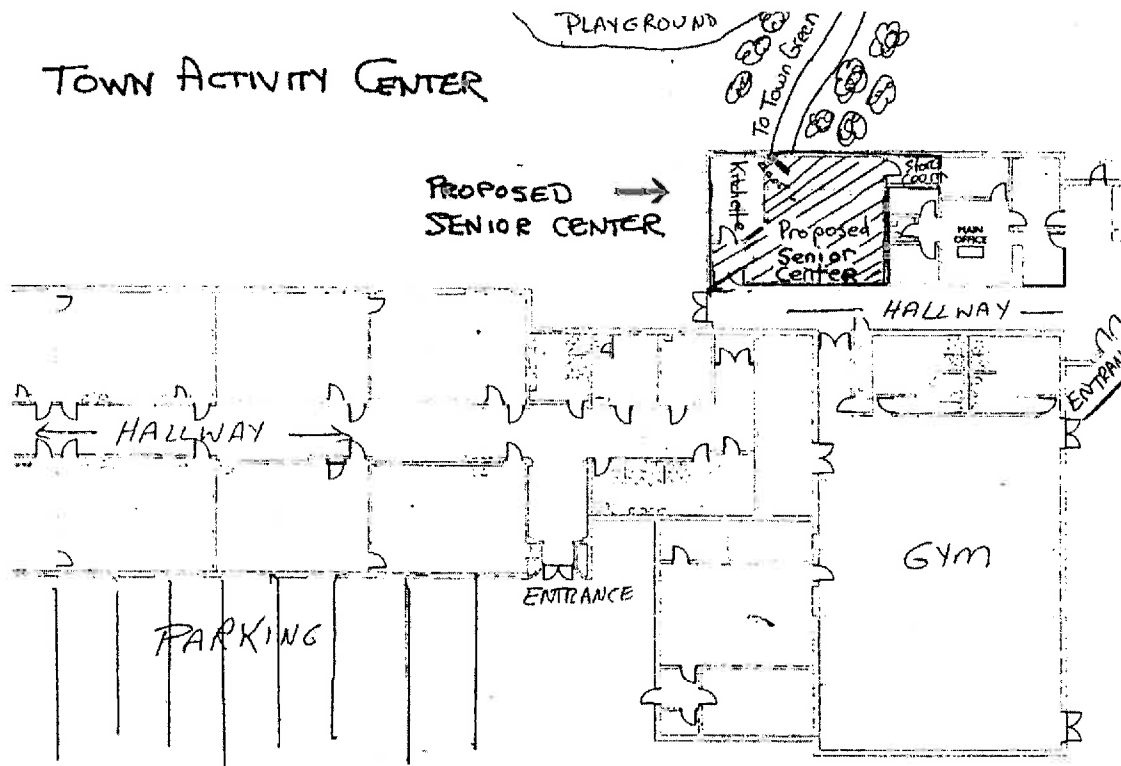 PLAYGROUND
TOWN ACTIVITY CENTER
To Town Green
PROPOSED
SENIOR CENTER
Kitchette
Door
Proposed
Senior
Center
MAIN
OFFICE
HALLWAY
HALLWAY
ENTRAN
GYM
ENTRANCE
PARKING